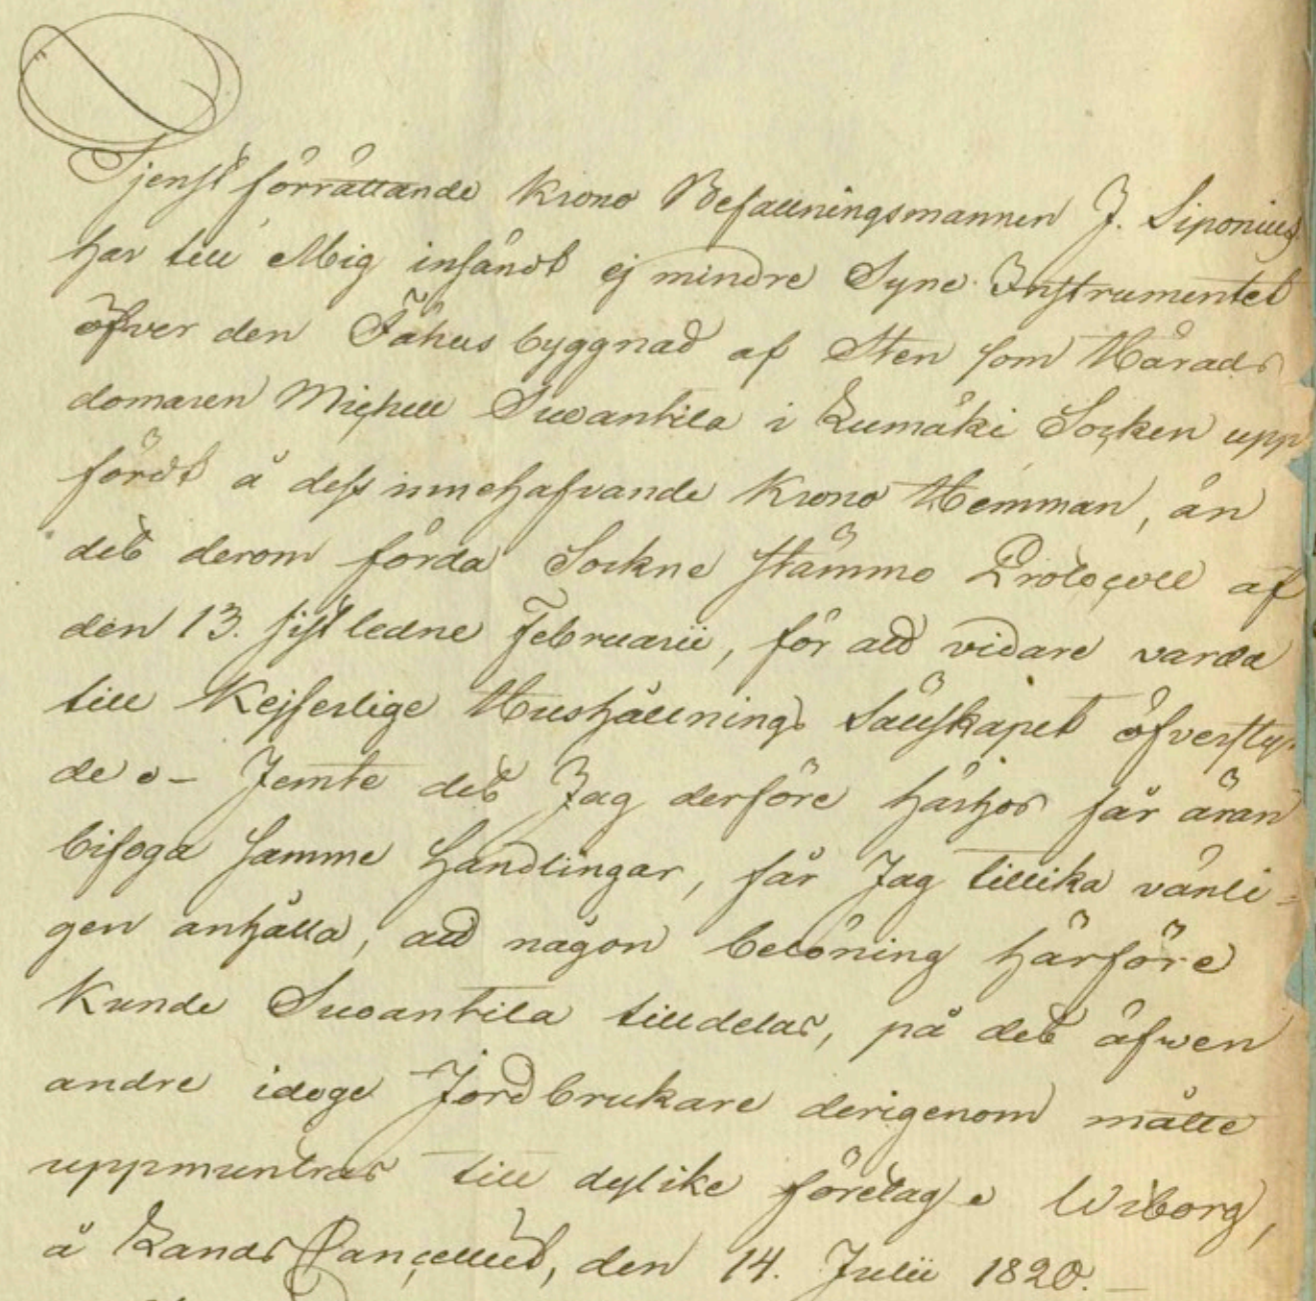 Tjenstförrättande Krono Befallningsmannen J. Siponius
har till Mig insändt ej mindre Syne Instrumentet
öfver den Fähus byggnad af Sten som Härads
domaren Michell Suvantila i Lumäki Socken upp
fördt å dess innehafvande Krono Hemman, än
det derom förda Sockne stämmo Protocoll af
den 13. sistledne Februarii, för att vidare varda
till Kejserlige Hushållnings Sällskapet öfversty-
de. Jemte det Jag derföre härhos får äran
bifoga samme Handlingar, får Jag tillika vänli-
gen anhålla, att någon belöning härföre
Kunde Suvantila tilldelas, på det äfwen
andre idoge Jordbrukare derigenom måtte
uppmuntras till dylike företag. Wiborg,
å Lands Cancelliet, den 14. Julii 1820.